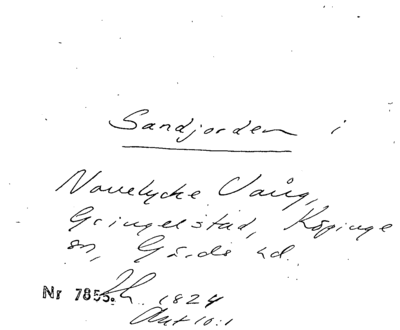 Sandjorden i
Navelycke Vång,
Gringelstad, Köpinge
sn, Gärds hd.
Nr 7855. 1824
Akt 10:1